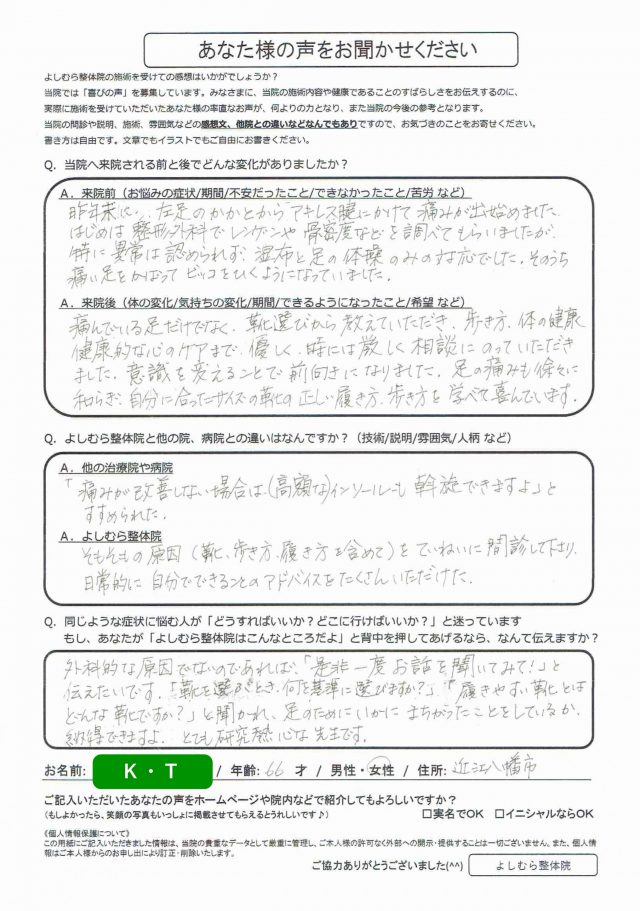 あなた様の声をお聞かせください
よしむら整体院の施術を受けての感想はいかがでしょうか？
当院では「喜びの声」を募集しています。みなさまに、当院の施術内容や健康であることのすばらしさをお伝えするのに、
実際に施術を受けていただいたあなた様の率直なお声が、何よりの力となり、また当院の今後の参考となります。
当院の問診や説明、施術、雰囲気などの感想文、他院との違いなどなんでもありですので、お気づきのことをお寄せください。
書き方は自由です。文章でもイラストでもご自由にお書きください。
Q．当院へ来院される前と後でどんな変化がありましたか？
A．来院前（お悩みの症状/期間/不安だったこと/できなかったこと/苦労 など）
昨年末に、左足のかかとからアキレス腱にかけて痛みが出始めました。
はじめは整形外科でレンゲンや骨密度などを調べてもらいましたが、
特に異常は認められず、湿布と足の体操のみの対応でした。そのうち
痛い足をかばってビッコをひくようになっていました。
A．来院後（体の変化/気持ちの変化/期間/できるようになったこと/希望 など）
痛んでいる足だけでなく、靴選びから教えていただき、歩き方、体の健康
健康的な心のケアまで、優しく、時には厳しく相談にのっていただき
ました。意識を変えることで前向きになりました。足の痛みも徐々に
和らぎ、自分に合ったサイズの靴の正しい履き方、歩き方を学べて喜んでいます。
Q．よしむら整体院と他の院、病院との違いはなんですか？（技術/説明/雰囲気/人柄 など）
A．他の治療院や病院
「痛みが改善しない場合は（高額な）インソールも斡旋できますよ」と
すすめられた。
A．よしむら整体院
そもそもの原因（靴、歩き方、履き方を含めて）をていねいに問診して下さり、
日常的に自分でできることのアドバイスをたくさんいただけた。
Q．同じような症状に悩む人が「どうすればいいか？どこに行けばいいか？」と迷っています
もし、あなたが「よしむら整体院はこんなところだよ」と背中を押してあげるなら、なんて伝えますか？
外科的な原因でないのであれば、「是非一度お話を聞いてみて！」と
伝えたいです。「靴を選ぶとき、何を基準に選びますか？」「履きやすい靴とは
どんな靴ですか？」と聞かれ、足のためにいかにまちがったことをしているか、
納得できますよ。とても研究熱心な先生です。
お名前: K・T / 年齢: 66 才 / 男性・女性 / 住所: 近江八幡市
ご記入いただいたあなたの声をホームページや院内などで紹介してもよろしいですか？
（もしよかったら、笑顔の写真もいっしょに掲載させてもらえるとうれしいです♪） □実名でOK □イニシャルならOK
《個人情報保護について》
この用紙にご記入いただきました情報は、当院の貴重なデータとして厳重に管理し、ご本人様の許可なく外部への開示・提供することは一切ございません。また、個人情
報はご本人様からのお申し出により訂正・削除いたします。
ご協力ありがとうございました(^^) よしむら整体院